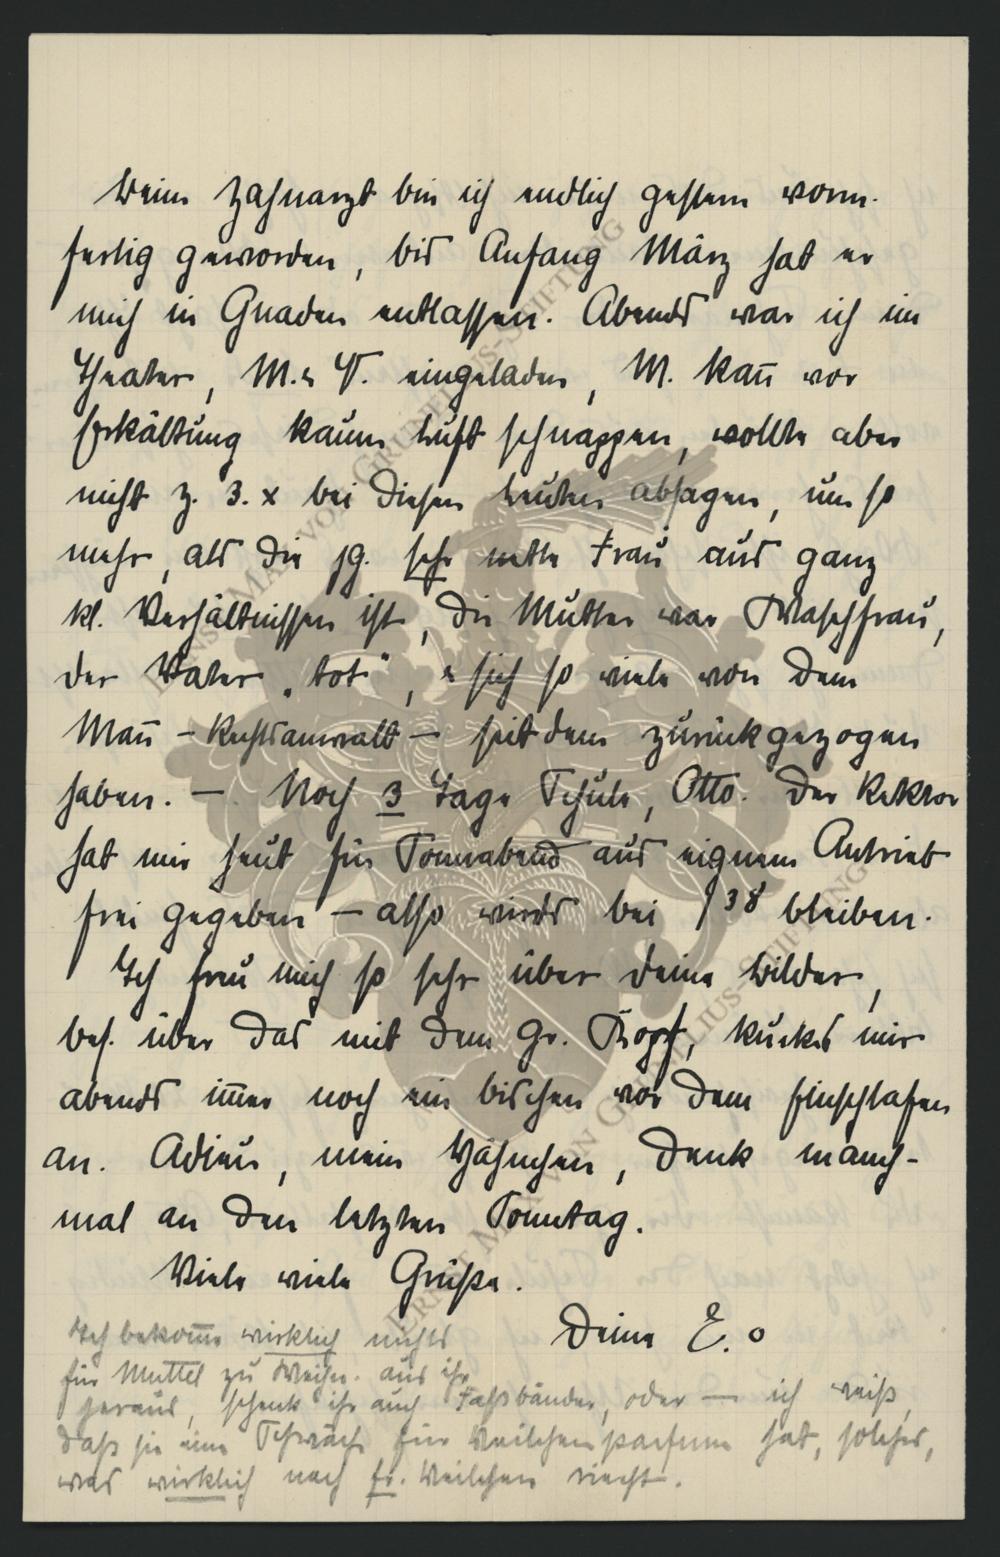 Beim Zahnarzt bin ich endlich gestern vorm.
fertig geworden, bis Anfang März hat er
mich in Gnaden entlassen. Abends war ich im
Theater, M. u. V. eingeladen, M. kañ vor
Erkältung kaum Luft schnappen, wollte aber
nicht z. 3. x bei diesen Leuten absagen, um so
mehr, als die jg. sehr nette Frau aus ganz
kl. Verhältnissen ist, die Mutter war Waschfrau,
der Vater „tot“, u. sich so viele von dem
Mañ – Rechtsanwalt – seitdem zurückgezogen
haben. – Noch 3 Tage Schule, Otto. Der Rektor
hat mir heut für Sonnabend aus eignem Antrieb
frei gegeben – also wirds bei 138 bleiben.
Ich freu mich so sehr über deine Bilder,
bes. über das mit dem gr. Kopf, kucks mir
abends im̄er noch ein bischen vor dem Einschlafen
an. Adieu, mein Hähnchen, denk manch-
mal an den letzten Sonntag.
Viele viele Grüße.
Deine E. o
Ich bekom̄e wirklich nichts
für Muttel zu Weihn. aus ihr
heraus, schenk ihr auch, oder – ich weiß,
daß sie eine Schwäche für Veilchenparfum hat, solches,
was wirklich nach fr. Veilchen riecht.
ERNST MAX VON GRUNELIUS-STIFTUNG
ERNST MAX VON GRUNELIUS-STIFTUNG